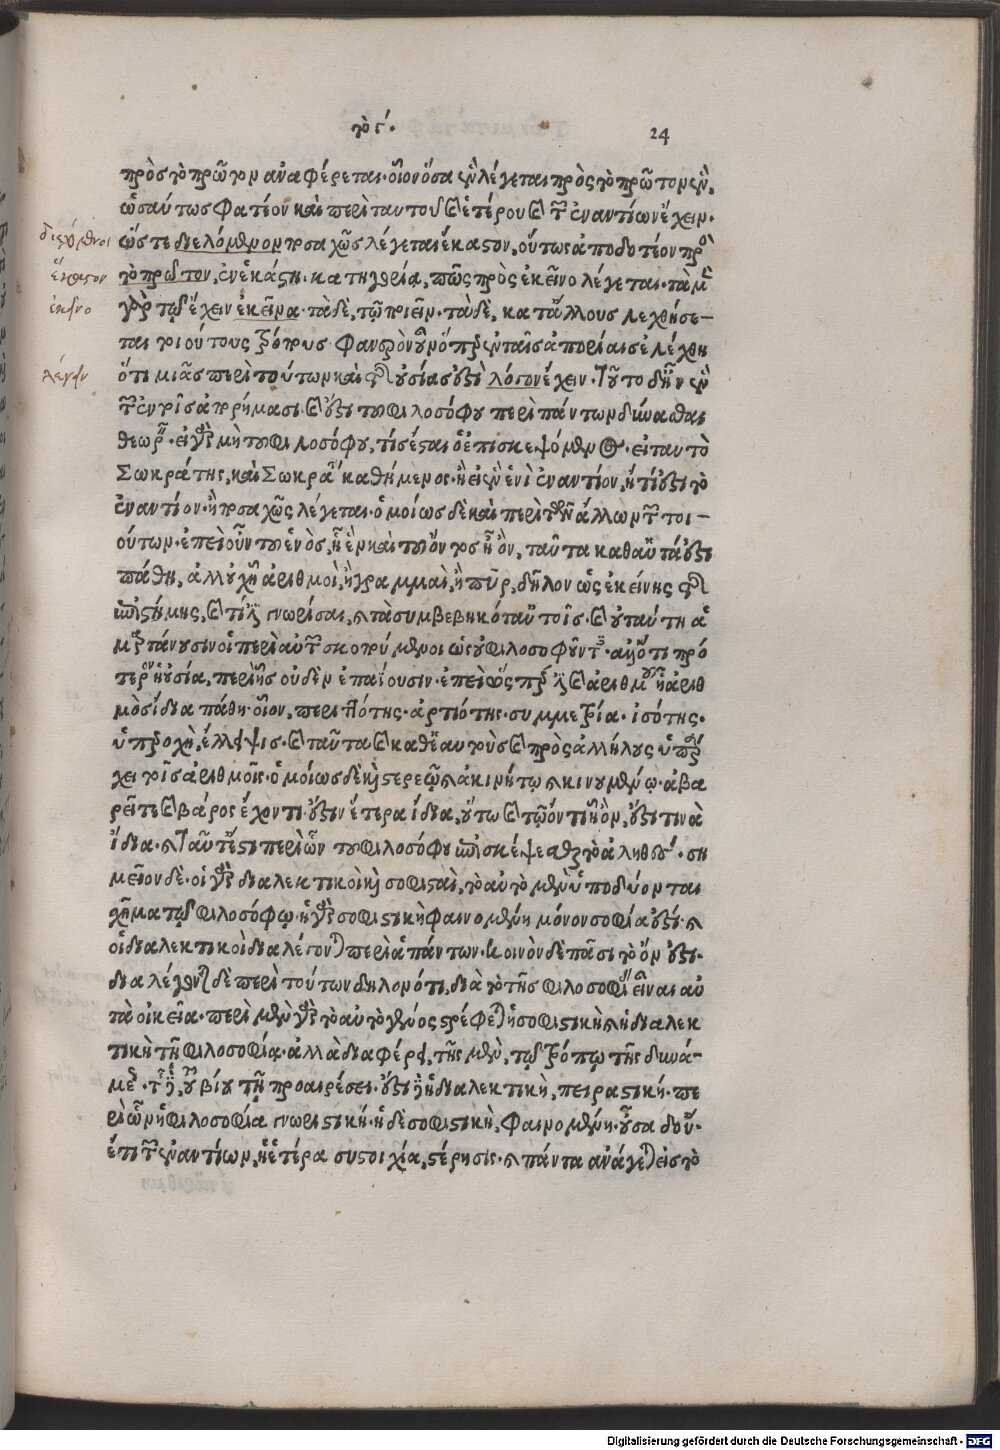 το γʹ. 24
πρὸς τὸ πρῶτον ἀναφέρεται· οἷον ὅσα ἓν λέγεται πρὸς τὸ πρῶτον ἕν.
ὡσαύτως φατέον καὶ περὶ ταυτοῦ καὶ ἑτέρου καὶ τῶν ἐναντίων ἔχειν.
ὥστε διελόμενον ποσαχῶς λέγεται ἕκαστον, οὕτως ἀποδοτέον πρὸς
τὸ πρῶτον, ἐν ἑκάστῃ κατηγορίᾳ, πῶς πρὸς ἐκεῖνο λέγεται· τὰ μὲν
γὰρ τῷ ἔχειν ἐκεῖνα· τὰ δὲ, τῷ ποιεῖν· τὰ δὲ, κατ' ἄλλους λεχθήσε-
ται τοιούτους τρόπους. φανερὸν οὖν ὅπερ ἐν ταῖς ἀπορίαις ἐλέχθη
ὅτι μιᾶς περὶ τούτων καὶ τῆς οὐσίας ἐστὶ λόγον ἔχειν. Τοῦτο δὴ ἦν ἓν
τῶν ἐν τοῖς ἀπορήμασι. καὶ ἔστι τοῦ φιλοσόφου περὶ πάντων δύνασθαι
θεωρεῖν. εἰ γὰρ μὴ τοῦ φιλοσόφου, τίς ἔσται ὁ ἐπισκεψόμενος εἰ ταυτὸ
Σωκράτης, καὶ Σωκράτης καθήμενος· ἢ εἰ ἓν ἑνὶ ἐναντίον, ἢ τί ἐστι τὸ
ἐναντίον· ἢ ποσαχῶς λέγεται· ὁμοίως δὲ καὶ περὶ τῶν ἄλλων τῶν τοι-
ούτων· ἐπεὶ οὖν τοῦ ἑνὸς, ᾗ ἓν καὶ τοῦ ὄντος ᾗ ὂν, ταῦτα καθ' αὑτά ἐστι
πάθη, ἀλλ' οὐχ ᾗ ἀριθμοὶ, ἢ γραμμαὶ, ἢ πῦρ, δῆλον ὡς ἐκείνης τῆς
ἐπιστήμης, καὶ τί ἐστι γνωρίσαι, καὶ τὰ συμβεβηκότα αὐτοῖς. καὶ οὐ ταύτῃ ἁ
μαρτάνουσιν οἱ περὶ αὐτῶν σκοπούμενοι ὡς οὐ φιλοσοφοῦντες· ἀλλ' ὅτι πρό
τερον ἡ οὐσία, περὶ ἧς οὐδὲν ἐπαΐουσιν· ἐπεὶ ὥσπερ ἔστι καὶ ἀριθμοῦ ᾗ ἀριθ
μὸς ἴδια πάθη· οἷον, περιττότης· ἀρτιότης· συμμετρία· ἰσότης·
ὑπεροχὴ, ἔλλειψις· καὶ ταῦτα καὶ καθ' ἑαυτοὺς καὶ πρὸς ἀλλήλους ὑπάρ
χει τοῖς ἀριθμοῖς· ὁμοίως δὲ καὶ στερεῷ καὶ ἀκινήτῳ καὶ κινουμένῳ· ἀβα
ρεῖ τε καὶ βάρος ἔχοντι ἔστιν ἕτερα ἴδια, οὕτω καὶ τῷ ὄντι ᾗ ὂν, ἔστι τινὰ
ἴδια· καὶ ταῦτ' ἔστι περὶ ὧν τοῦ φιλοσόφου ἐπισκέψασθαι τὸ ἀληθές. ση
μεῖον δέ· οἱ γὰρ διαλεκτικοὶ καὶ σοφισταὶ, τὸ αὐτὸ μὲν ὑποδύονται
σχῆμα τῷ φιλοσόφῳ· ἡ γὰρ σοφιστικὴ φαινομένη μόνον σοφία ἐστί· καὶ
οἱ διαλεκτικοὶ διαλέγονται περὶ ἁπάντων. κοινὸν δὲ πᾶσι τὸ ὄν ἐστι.
διαλέγονται δὲ περὶ τούτων δηλονότι, διὰ τὸ τῆς φιλοσοφίας εἶναι αὐ
τὰ οἰκεῖα. περὶ μὲν γὰρ τὸ αὐτὸ γένος στρέφεται ἡ σοφιστικὴ καὶ ἡ διαλεκ
τικὴ τῇ φιλοσοφίᾳ· ἀλλὰ διαφέρει, τῆς μὲν, τῷ τρόπῳ τῆς δυνά-
μεως· τῆς δὲ, τοῦ βίου τῇ προαιρέσει. ἔστι δὲ ἡ διαλεκτικὴ, πειραστικὴ· πε
ρὶ ὧν ἡ φιλοσοφία γνωριστική· ἡ δὲ σοφιστικὴ, φαινομένη· οὖσα δ' οὔ.
ἔτι τῶν ἐναντίων, ἡ ἑτέρα συστοιχία, στέρησις· καὶ πάντα ἀνάγεται εἰς τὸ
ἕκαστον
ἐκεῖνο
λέγειν
Digitalisierung gefördert durch die Deutsche Forschungsgemeinschaft - DFG